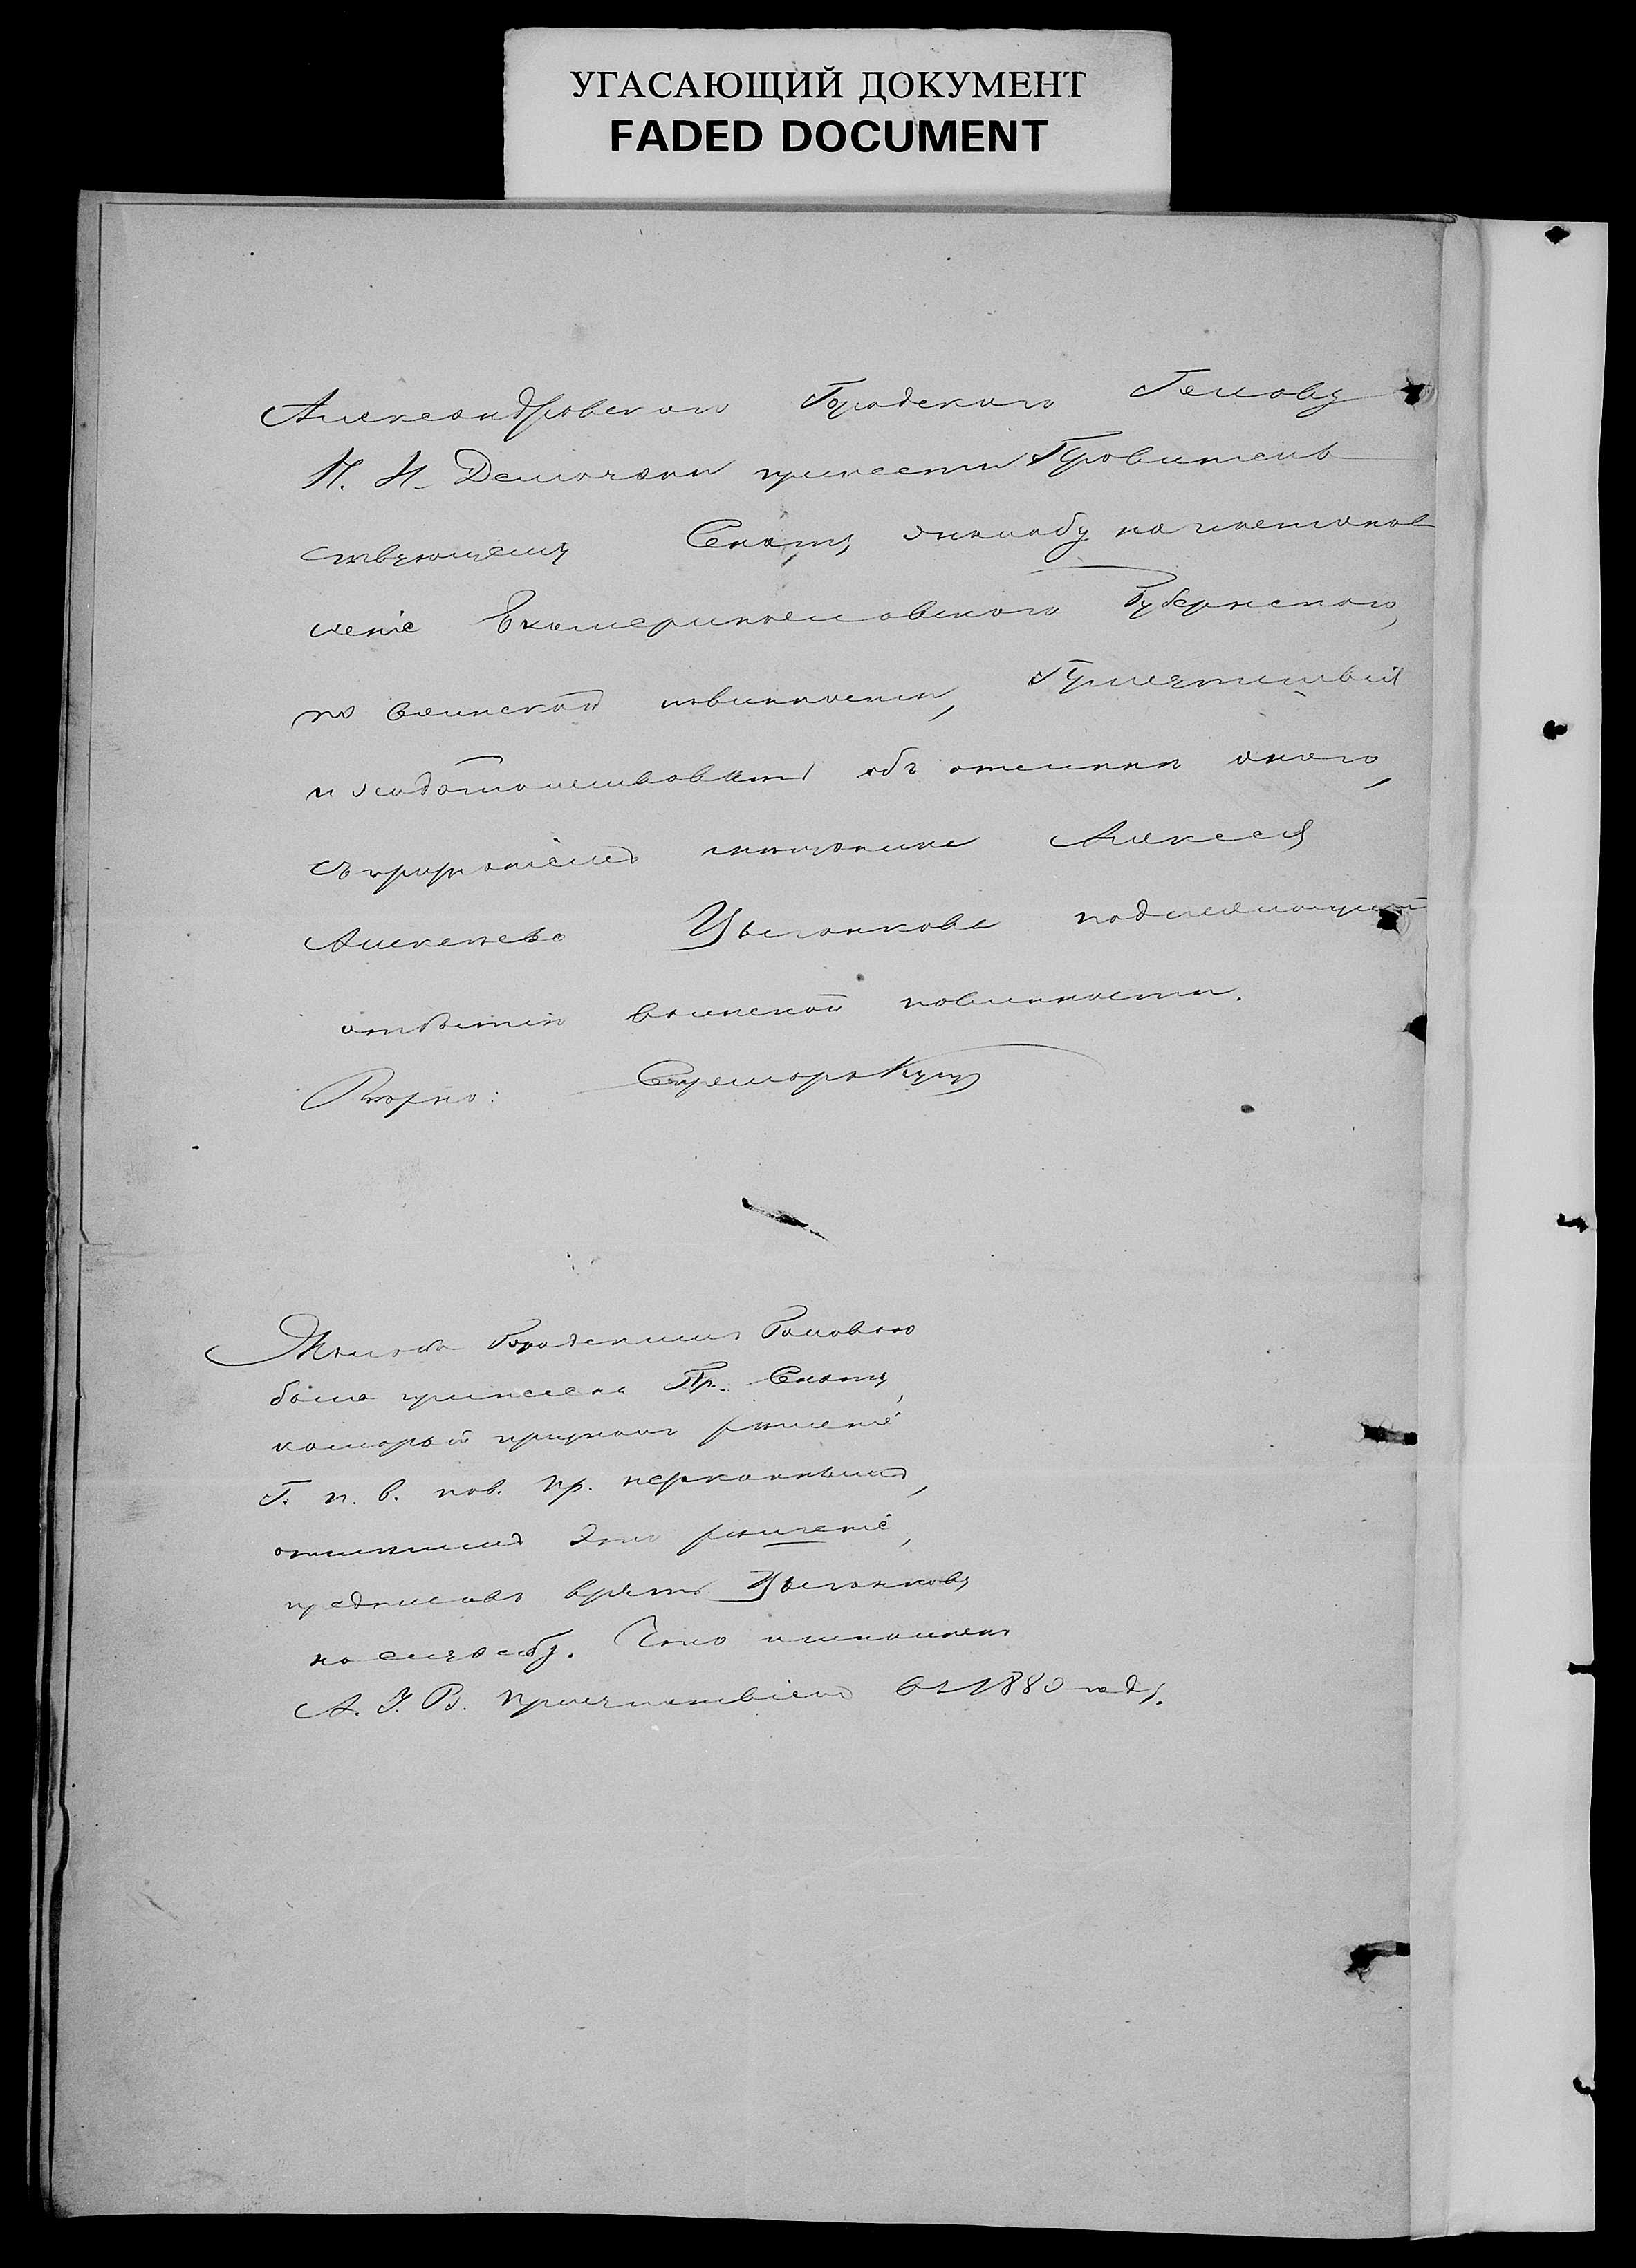 УГАСАЮЩИЙ ДОКУМЕНТ
FADED DOCUMENT
Александровского Городского Голову
П. И. принести Правитель
ствующему Сенату жалобу на постанов
леніе Екатеринославского Губернского,
по воинской повинности, Присутствія
и ходатайствовать объ отмене оного,
съ мещанина Алексея
Алексеева Цыганкова подлежащим
отбытію воинской повинности.
Верно: Секретарь
Жалоба Городскимъ Головою
была принесена Пр. Сенату,
который призналъ решеніе
Г. п. в. пов. Пр.
отменилъ это решеніе,
предписавъ взять Цыганкова
на службу. Что исполнено
А. У. В. Присутствіемъ въ 1880 году.